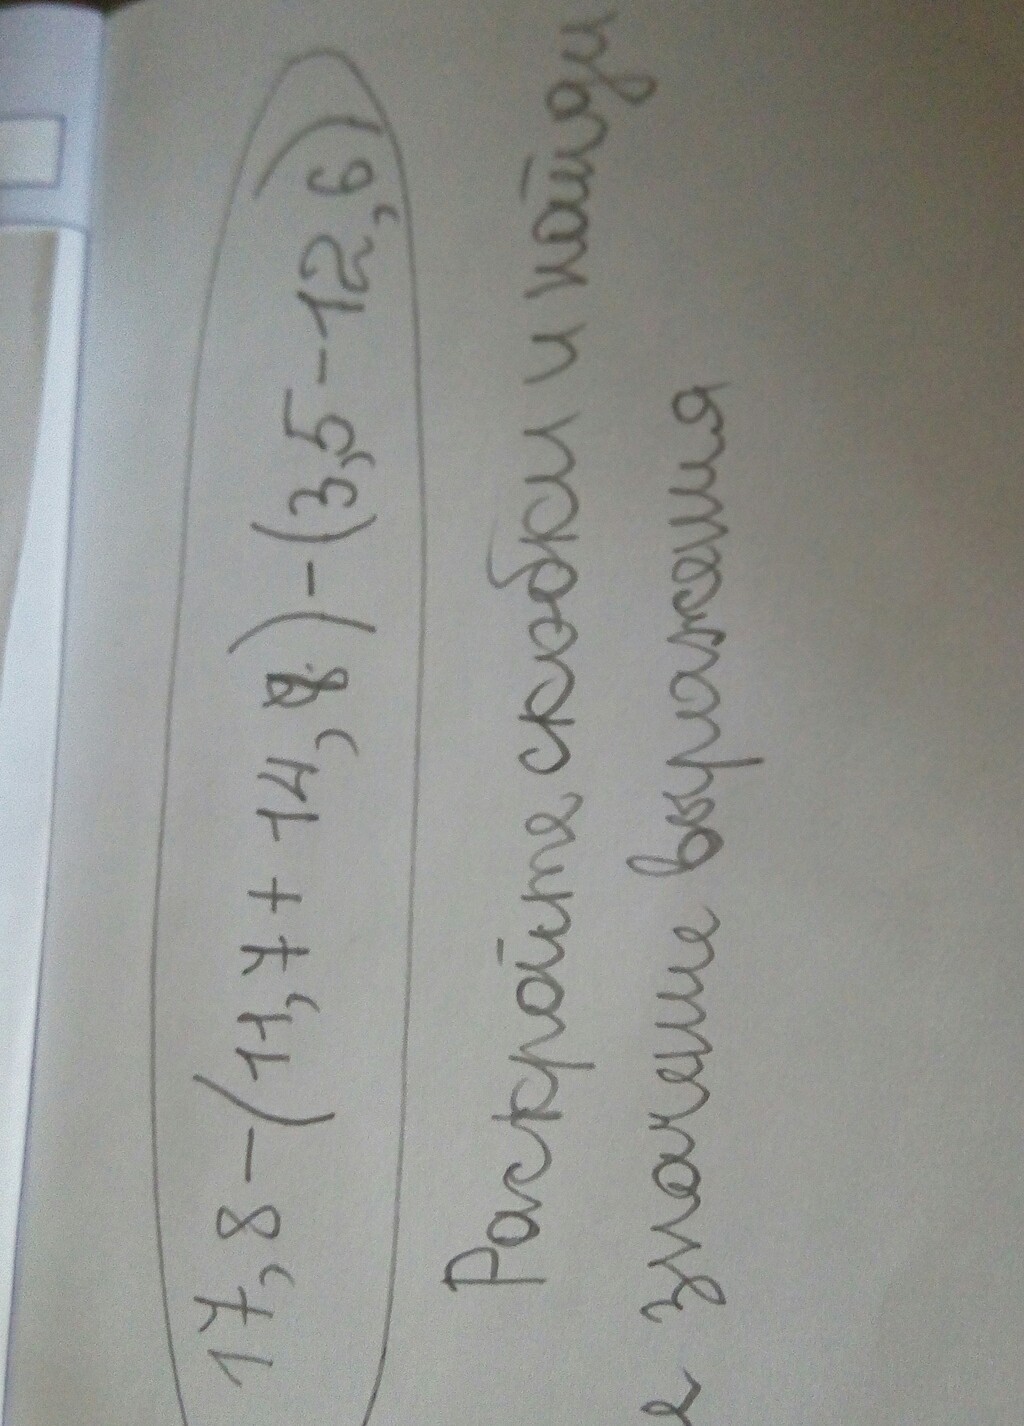 17,8-(11,7+14,8)-(3,5-12,6)
Раскройте скобки и найди
е значение выражения